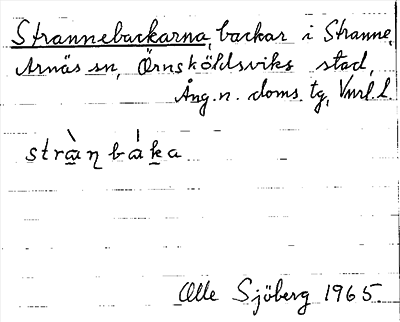 Strannebackarna, backar i Stranne,
Arnäs sn, Örnsköldsviks stad,
Ång. n. doms. tg, Vnrl. l.
stràŋ báka
Olle Sjöberg 1965.